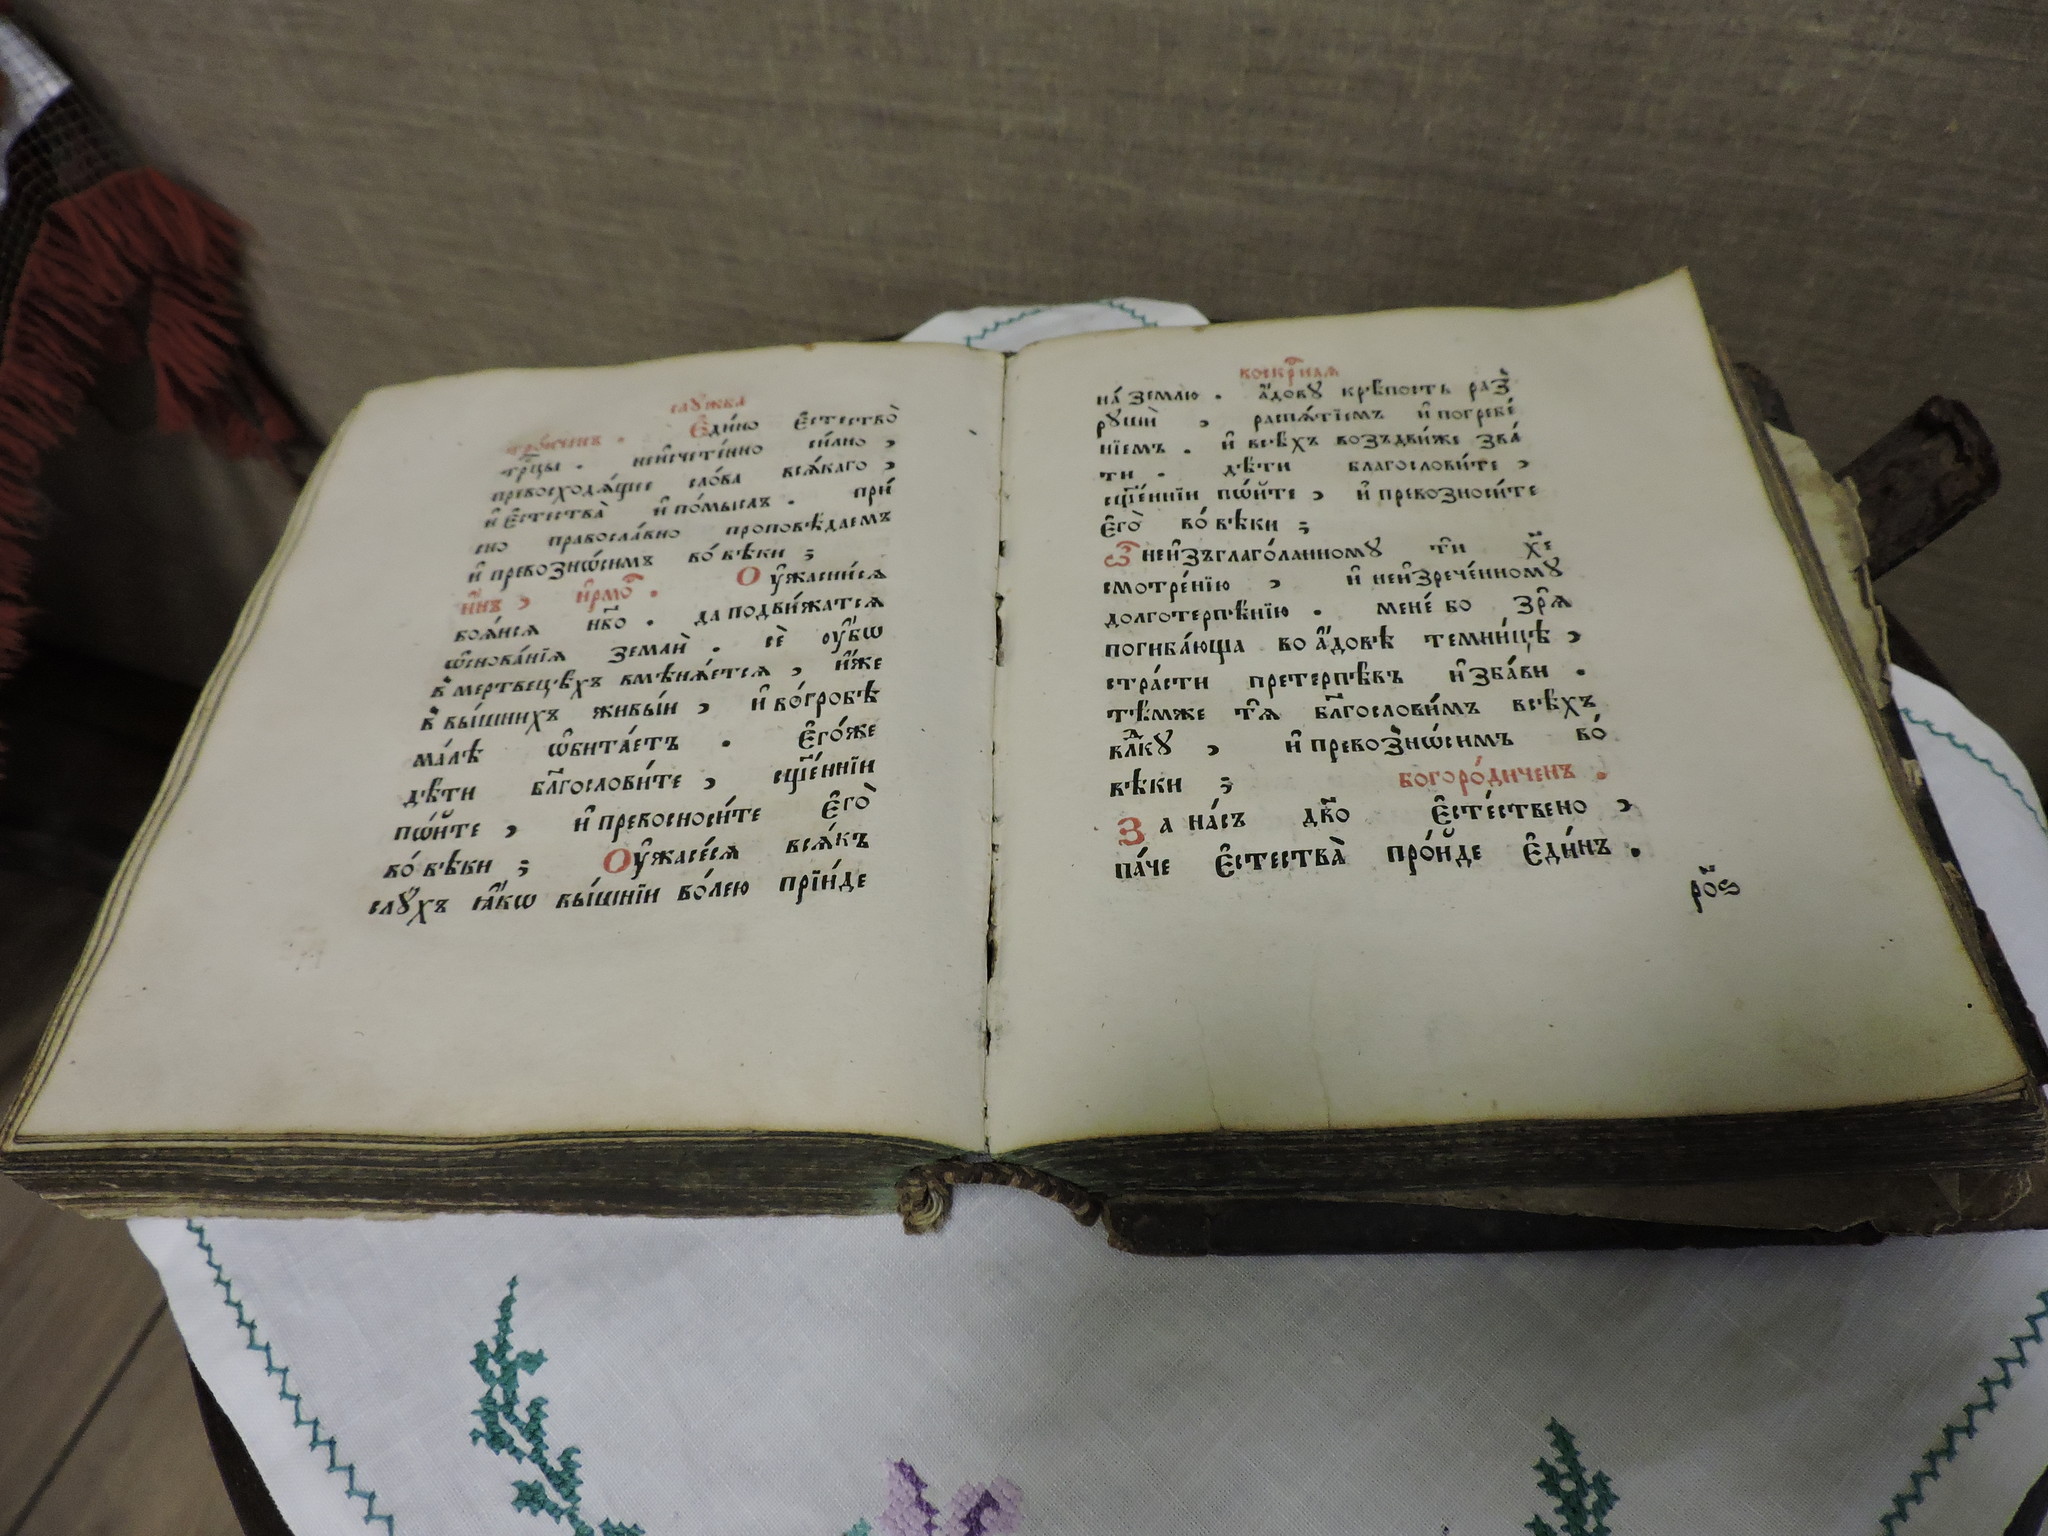 слꙋжба
трⷪ҇иченъ . Є҆ди́но є҆стество̀
трⷪ҇цы . неи҆счете́нно си́лно ,
превосходѧ́щее сло́ва всѧ́каго ,
и҆ є҆стества̀ и҆ по́мыслъ . при́
сно правосла́вно проповѣ́даемъ
и҆ превозно́симъ во́ вѣки ;
и҆́нъ , и҆рмо́с . Оу҆жасни́сѧ
боѧ́исѧ нб҃о . да подви́жатсѧ
ѡ҆снова́нїѧ землѝ . сѐ оу҆́бѡ
в҆ мертвецѣ́хъ вмѣнѧ́етсѧ , и҆́же
в҆ вы́шнихъ живы́и , и҆ во́гробѣ
ма́лѣ ѡ҆бита́етъ . Є҆го́же
дѣ́ти бл҃гослови́те , сщ҃е́ннїи
пѡ́йте , и҆ превосноси́те є҆го̀
во́ вѣки ; Оу҆жасе́сѧ всѧ́къ
слꙋ́хъ ꙗ҆́кѡ вы́шнїи во́лею прїи́де
воскрⷭ҇наѧ
на́ землю . а҆́довꙋ крѣ́пость раз̾
рꙋшѝ , распѧ́тїемъ и҆ погребе́
нїемъ . и҆ всѣ́хъ возъдви́же зва́
ти . дѣ́ти благослови́те ,
сщ҃е́ннїи пѡ́йте , и҆ превозноси́те
є҆го̀ во́ вѣки ;
Ѿ неи҆зъглаго́ланномꙋ тѝ хⷭ҇е
смотре́нїю , и҆ неи҆зрече́нномꙋ
долготерпѣ́нїю . мене́ бо зрѧ̀
погиба́юща во а҆́довѣ темни́цѣ ,
стра́сти претерпѣ́въ и҆зба́ви .
тѣ́мже тѧ̀ бл҃гослови́мъ всѣ́хъ
влⷣкꙋ , и҆ превоз̾но́симъ во́
вѣки ; богоро́диченъ .
За на́съ дв҃о є҆сте́ствено ,
па́че є҆стества̀ про́йде є҆ди́нъ .
роѕ